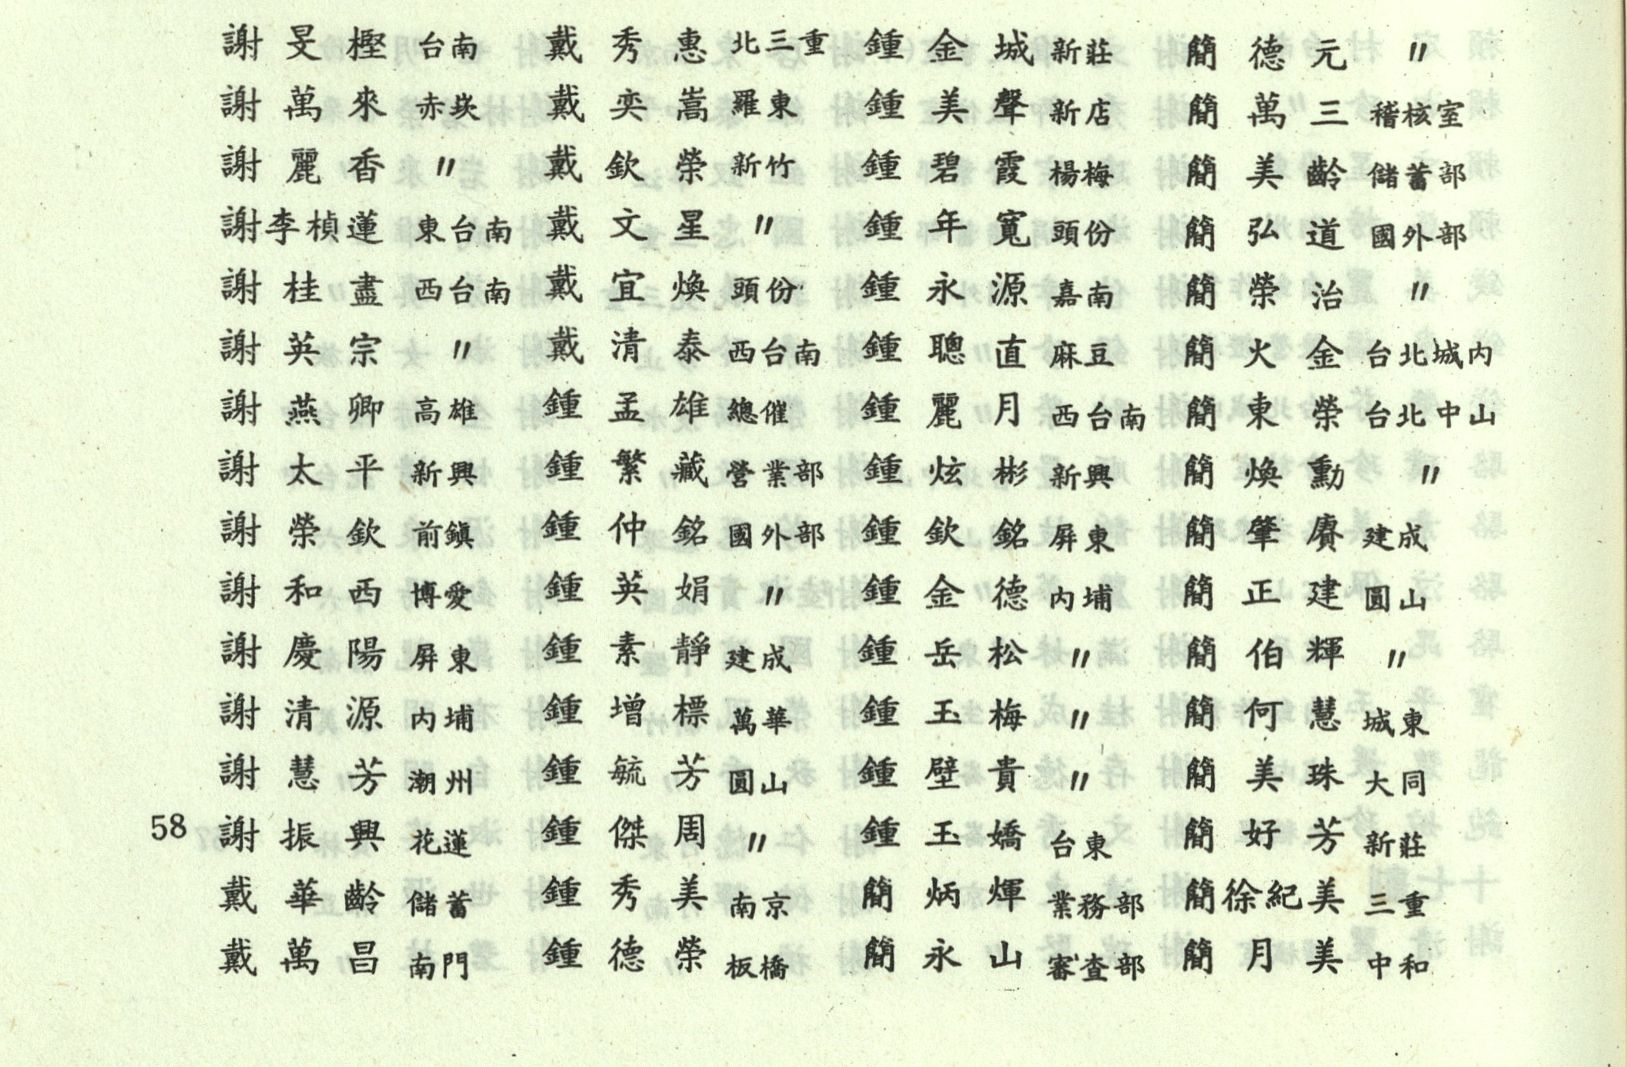 謝旻樫 台南
謝萬來 赤崁
謝麗香 〃
謝李楨蓮 東台南
謝桂盡 西台南
謝英宗 〃
謝燕卿 高雄
謝太平 新興
謝榮欽 前鎮
謝和西 博愛
謝慶陽 屏東
謝清源 內埔
謝慧芳 潮州
謝振興 花蓮
戴華齡 儲蓄
戴萬昌 南門
戴秀惠 北三重
戴奕嵩 羅東
戴欽榮 新竹
戴文星 〃
戴宜煥 頭份
戴清泰 西台南
鍾孟雄 總催
鍾繁藏 營業部
鍾仲銘 國外部
鍾英娟 〃
鍾素靜 建成
鍾增標 萬華
鍾毓芳 圓山
鍾傑周 〃
鍾秀美 南京
鍾德榮 板橋
鍾金城 新莊
鍾美聲 新店
鍾碧霞 楊梅
鍾年寬 頭份
鍾永源 嘉南
鍾聰直 麻豆
鍾麗月 西台南
鍾炫彬 新興
鍾欽銘 屏東
鍾金德 內埔
鍾岳松 〃
鍾玉梅 〃
鍾壁貴 〃
鍾玉嬌 台東
簡炳煇 業務部
簡永山 審查部
簡德元 〃
簡萬三 稽核室
簡美齡 儲蓄部
簡弘道 國外部
簡榮治 〃
簡火金 台北城內
簡東榮 台北中山
簡煥勳 〃
簡肇賡 建成
簡正建 圓山
簡伯輝 〃
簡何慧 城東
簡美珠 大同
簡好芳 新莊
簡徐紀美 三重
簡月美 中和
58